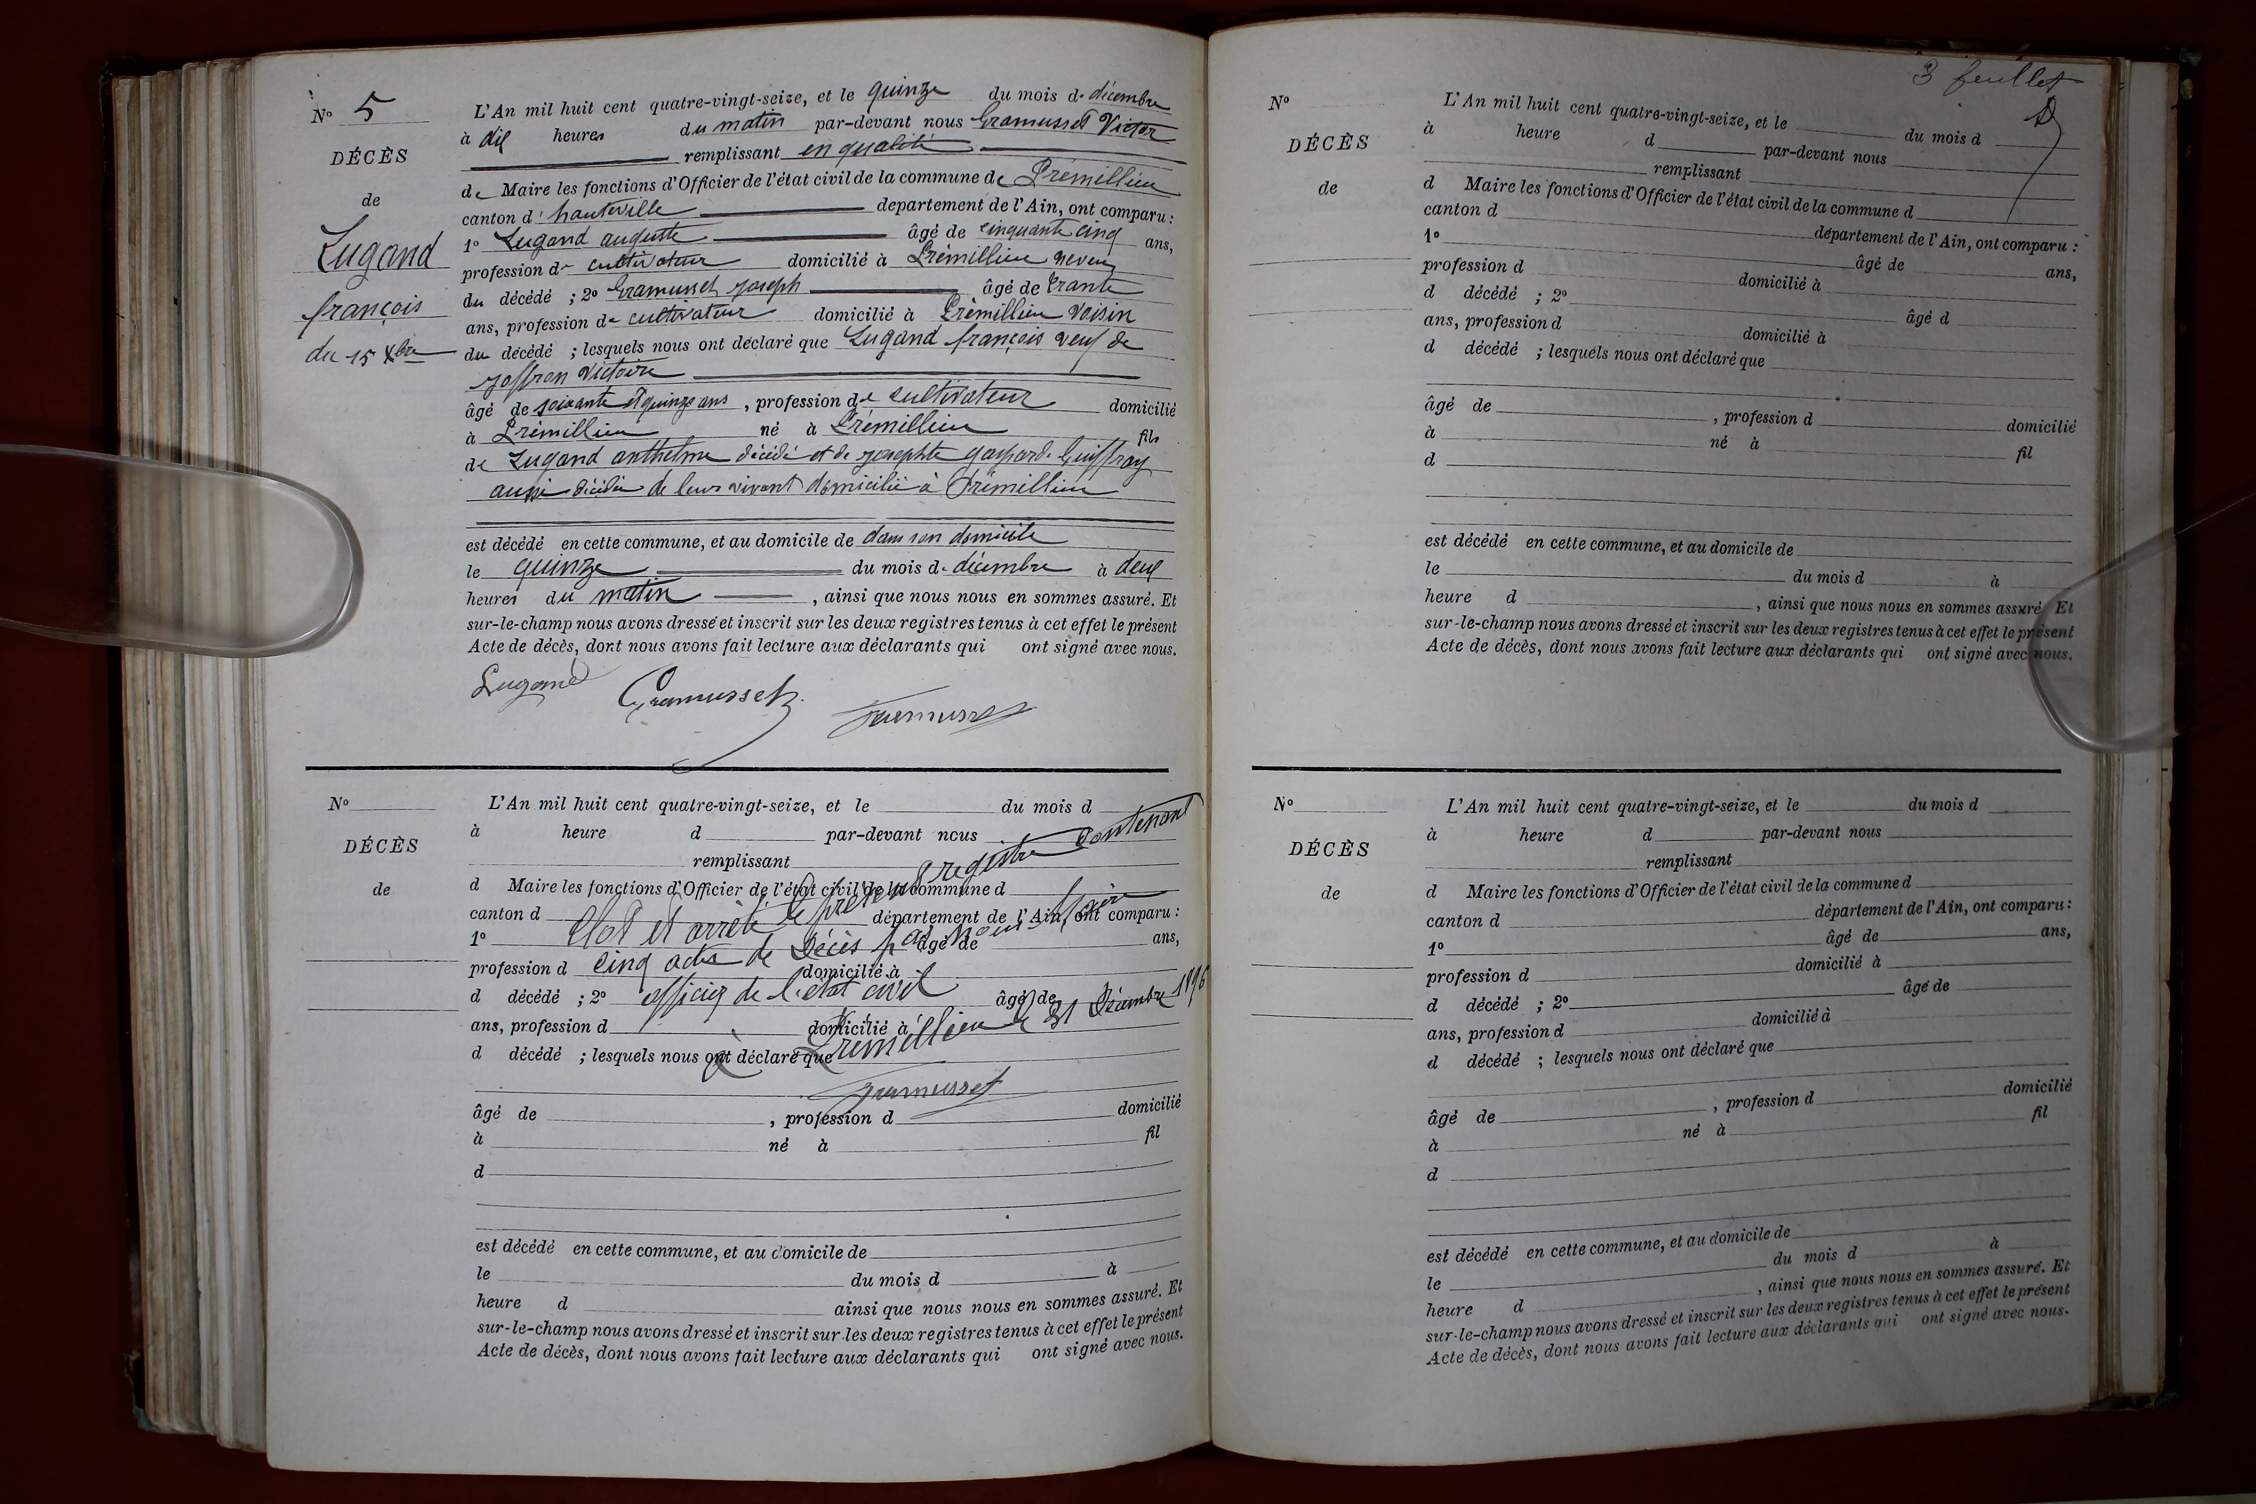 N° 5
DÉCÈS
de
Lugand
françois
du 15 Xbre
L'An mil huit cent quatre-vingt-seize, et le quinze du mois de décembre
à dix heures du matin par-devant nous Gramusset Victor
remplissant en qualité
de Maire les fonctions d'Officier de l'état civil de la commune de Prémillieu
canton d'hauteville departement de l'Ain, ont comparu :
1° Lugand auguste âgé de cinquante cinq ans,
profession de cultivateur domicilié à Prémillieu neveu
du décédé ; 2° Gramusset joseph âgé de trante
ans, profession de cultivateur domicilié à Prémillieu voisin
du décédé ; lesquels nous ont déclaré que Lugand françois veuf de
joffron Victoire
âgé de soixante et quinze ans , profession de cultivateur domicilié
à Prémillieu né à Prémillieu fils
de Lugand anthelme décédé et de josephte gaspard Guiffray
aussi décédée de leur vivant domicilié à Prémillieu
est décédé en cette commune, et au domicile de dans son domicile
le quinze du mois de décembre à deux
heures du matin , ainsi que nous nous en sommes assuré. Et
sur-le-champ nous avons dressé et inscrit sur les deux registres tenus à cet effet le présent
Acte de décès, dont nous avons fait lecture aux déclarants qui ont signé avec nous.
Lugand Gramusset Gramusset
N°
DÉCÈS
de
L'An mil huit cent quatre-vingt-seize, et le du mois d
à heure d par-devant nous
remplissant
d Maire les fonctions d'Officier de l'état civil de la commune d
canton d département de l'Ain, ont comparu :
1° âgé de ans,
profession d domicilié à
d décédé ; 2° âgé de
ans, profession d domicilié à
d décédé ; lesquels nous ont déclaré que
Clos et arrêté le présent registre contenant
cinq actes de Décès par nous Maire
officier de l'état civil
Prémillieu le 31 Décembre 1896
Gramusset
âgé de , profession d domicilié
à né à fil
d
est décédé en cette commune, et au domicile de
le du mois d à
heure d ainsi que nous nous en sommes assuré. Et
sur-le-champ nous avons dressé et inscrit sur les deux registres tenus à cet effet le présent
Acte de décès, dont nous avons fait lecture aux déclarants qui ont signé avec nous.
3 feuillet
N°
DÉCÈS
de
L'An mil huit cent quatre-vingt-seize, et le du mois d
à heure d par-devant nous
remplissant
d Maire les fonctions d'Officier de l'état civil de la commune d
canton d département de l'Ain, ont comparu :
1° âgé de ans,
profession d domicilié à
d décédé ; 2° âgé d
ans, profession d domicilié à
d décédé ; lesquels nous ont déclaré que
âgé de , profession d domicilié
à né à fil
d
est décédé en cette commune, et au domicile de
le du mois d à
heure d , ainsi que nous nous en sommes assuré Et
sur-le-champ nous avons dressé et inscrit sur les deux registres tenus à cet effet le présent
Acte de décès, dont nous avons fait lecture aux déclarants qui ont signé avec nous.
N°
DÉCÈS
de
L'An mil huit cent quatre-vingt-seize, et le du mois d
à heure d par-devant nous
remplissant
d Maire les fonctions d'Officier de l'état civil de la commune d
canton d département de l'Ain, ont comparu :
1° âgé de ans,
profession d domicilié à
d décédé ; 2° âgé de
ans, profession d domicilié à
d décédé ; lesquels nous ont déclaré que
âgé de , profession d domicilié
à né à fil
d
est décédé en cette commune, et au domicile de
le du mois d à
heure d , ainsi que nous nous en sommes assuré. Et
sur-le-champ nous avons dressé et inscrit sur les deux registres tenus à cet effet le présent
Acte de décès, dont nous avons fait lecture aux déclarants qui ont signé avec nous.